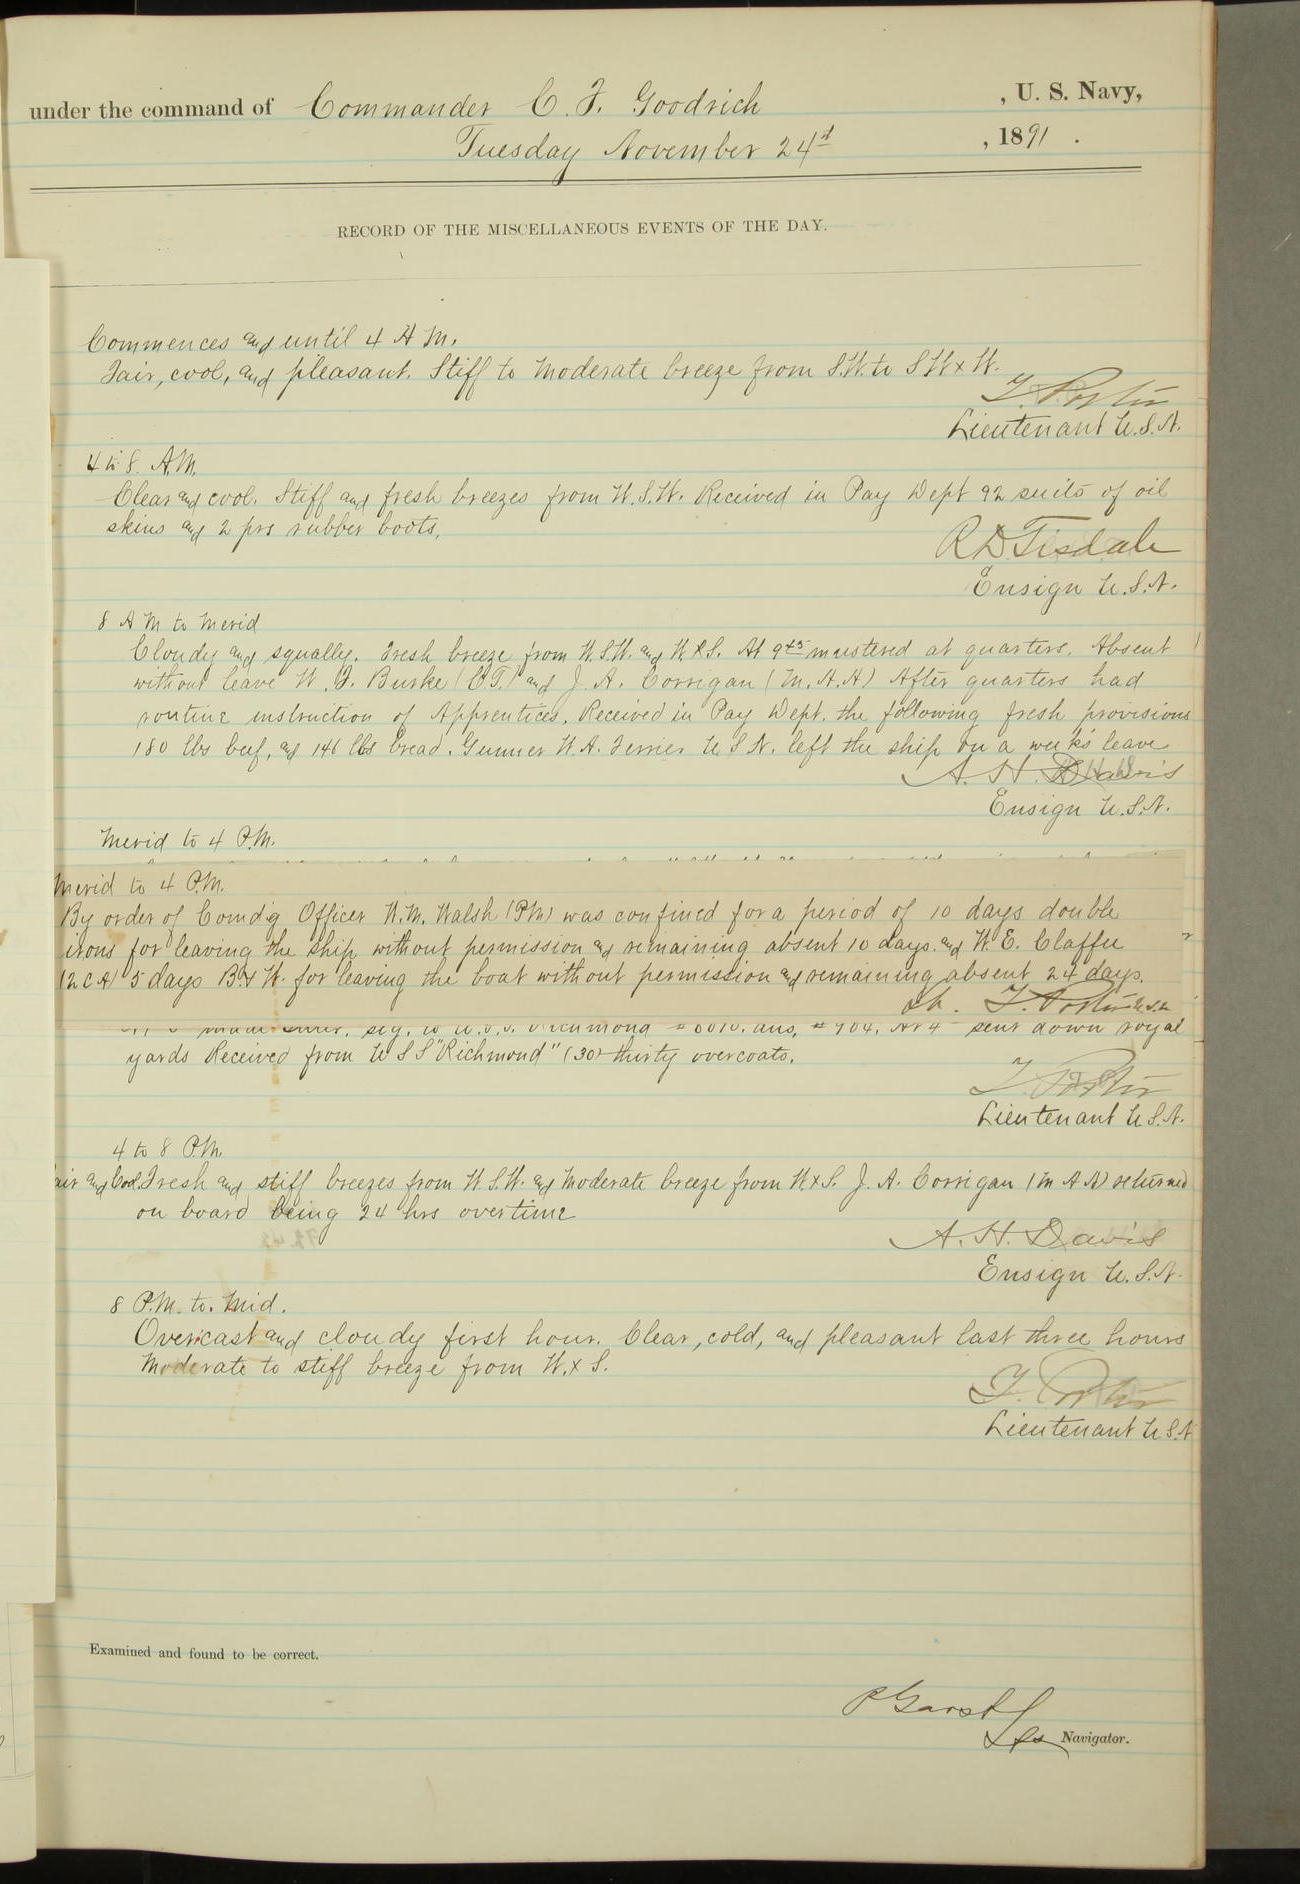 under the command of Commander C. F. Goodrich , U. S. Navy,
Tuesday November 24th , 1891 .
RECORD OF THE MISCELLANEOUS EVENTS OF THE DAY.
Commences and until 4 A M.
Fair, cool, and pleasant. Stiff to moderate breeze from S.W. to S W x W.
Lieutenant U.S.N.
4 to 8 A.M.
Clear and cool. Stiff and fresh breezes from W.S.W. Received in Pay Dept 92 suits of oil
skins and 2 prs rubber boots.
R D Tisdale
Ensign U.S.N.
8 A M to Merid
Cloudy and squally. Fresh breeze from W.S.W. and W. x S. At 9 45 mustered at quarters. Absent
without leave W. F. Burke (CT) and J. A. Corrigan (M.A.A) After quarters had
routine instruction of Apprentices. Received in Pay Dept. the following fresh provisions
180 lbs beef, and 146 lbs bread. Gunner W.A. Ferrier U S N. left the ship on a week's leave
A. H. Davis
Ensign U.S.N.
Merid to 4 P.M.
Merid to 4 P.M.
By order of Comdg Officer W.M. Walsh (PM) was confined for a period of 10 days double
irons for leaving the ship without permission and remaining absent 10 days. and W. E. Claffee
(2 C A) 5 days B. & W. for leaving the boat without permission and remaining absent 24 days.
sent down royal
yards Received from U S S "Richmond" (30) thirty overcoats.
Lieutenant U S.N.
4 to 8 P.M.
air and Cool. Fresh and stiff breezes from W.S.W. and moderate breeze from W. x S. J. A. Corrigan (M A A) returned
on board being 24 hrs overtime
A. H. Davis
Ensign U.S.N.
8 P.M. to Mid.
Overcast and cloudy first hour. Clear, cold, and pleasant last three hours
Moderate to stiff breeze from W. x S.
Lieutenant U S.N
Examined and found to be correct.
Navigator.